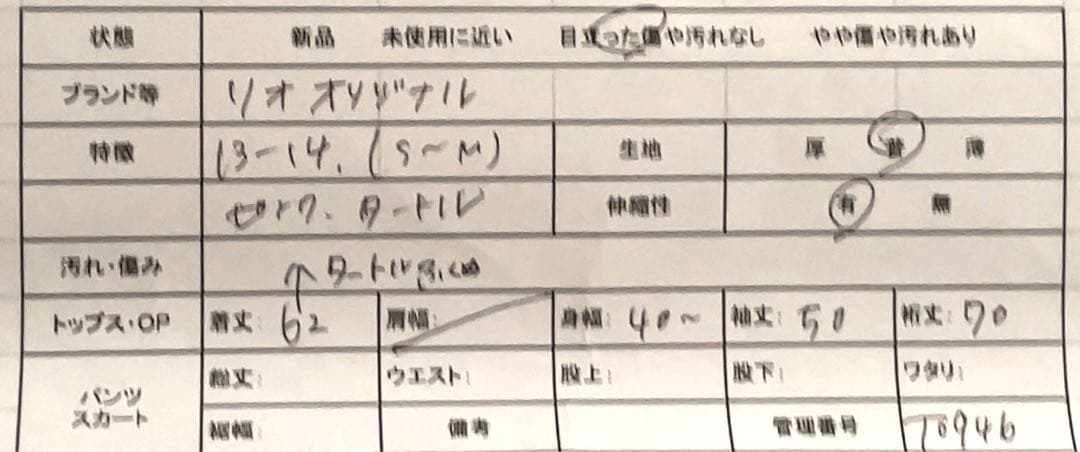 状態 新品 未使用に近い 目立った傷や汚れなし やや傷や汚れあり
ブランド等 リオ オリジナル
特徴 13-14. (S~M) 生地 厚 普 薄
タートル 伸縮性 有 無
汚れ・傷み ↑タートルふくめ
トップス・OP 着丈: 62 肩幅: 身幅: 40~ 袖丈: 50 裄丈: 70
パンツ スカート 総丈: ウエスト: 股上: 股下: ワタリ:
裾幅: 備考 管理番号 T0946